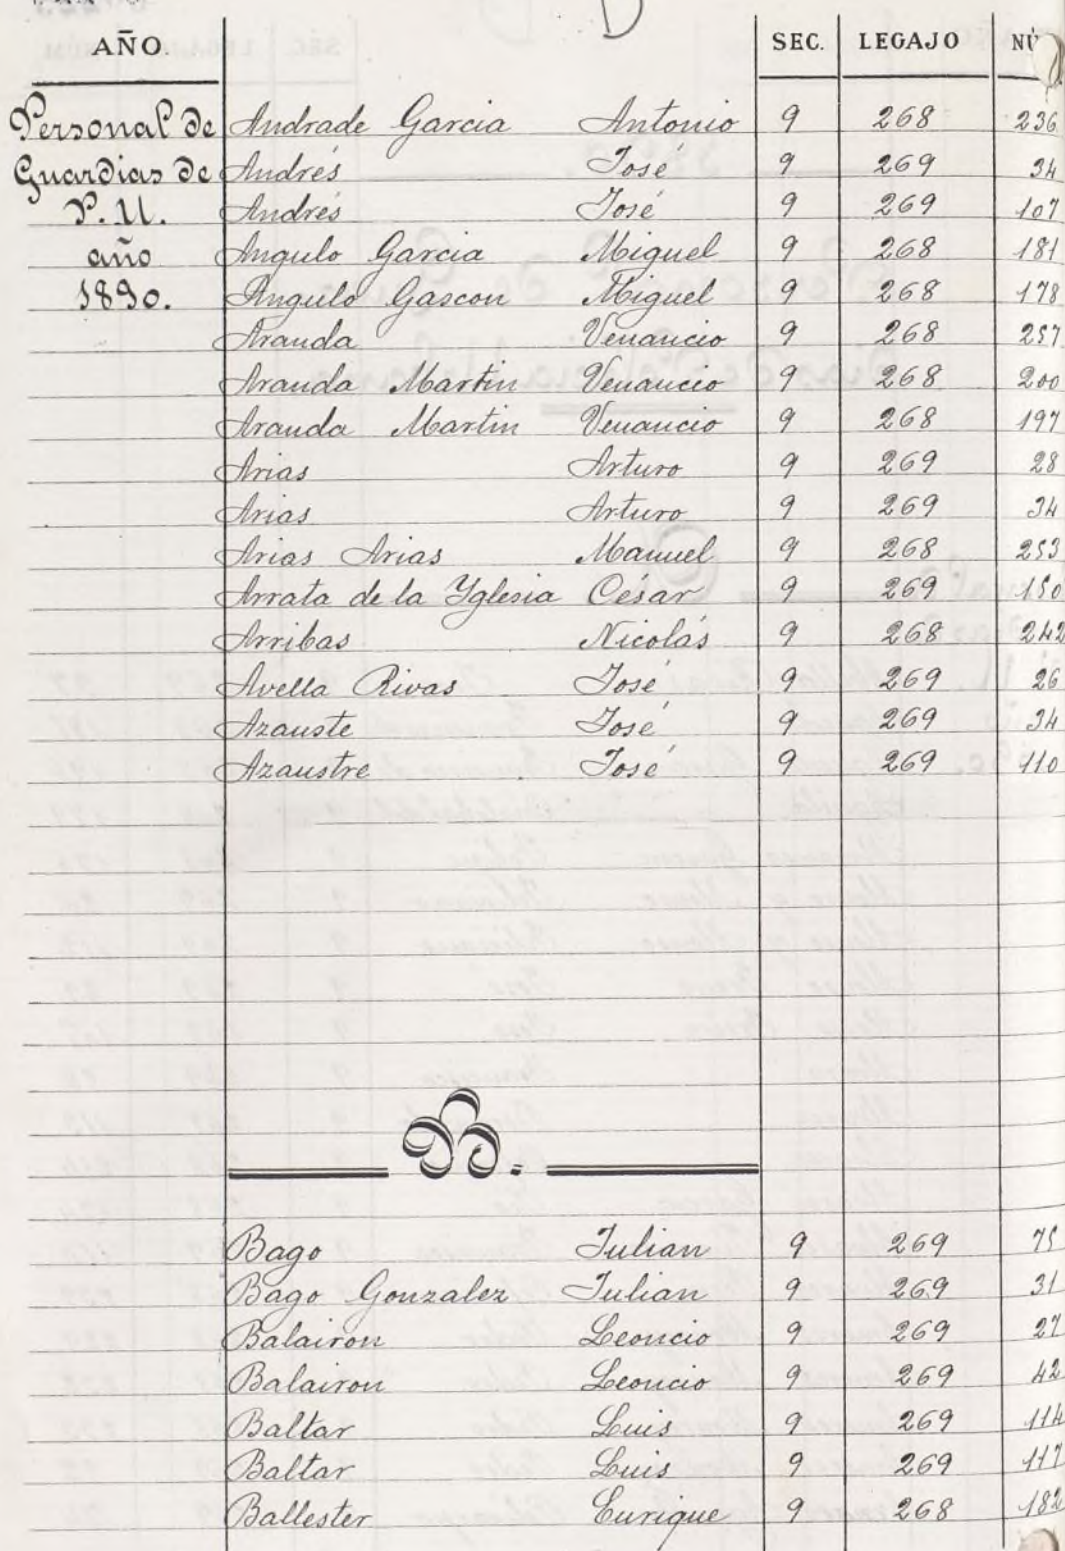 AÑO. SEC. LEGAJO
Personal de Andrade Garcia Antonio 9 268 236
Guardias de Andrés José 9 269 34
P. U. Andrés José 9 269 107
año Angulo Garcia Miguel 9 268 181
1890. Angulo Gascon Miguel 9 268 178
Aranda Venancio 9 268 257
Aranda Martin Venancio 9 268 200
Aranda Martin Venancio 9 268 197
Arias Arturo 9 269 28
Arias Arturo 9 269 34
Arias Arias Manuel 9 268 253
Arrata de la Yglesia César 9 269 150
Arribas Nicolás 9 268 242
Avella Rivas José 9 269 26
Azauste José 9 269 34
Azaustre José 9 269 110
B.
Bago Julian 9 269 75
Bago Gonzalez Julian 9 269 31
Balairon Leoncio 9 269 27
Balairon Leoncio 9 269 42
Baltar Luis 9 269 114
Baltar Luis 9 269 117
Ballester Enrique 9 268 182